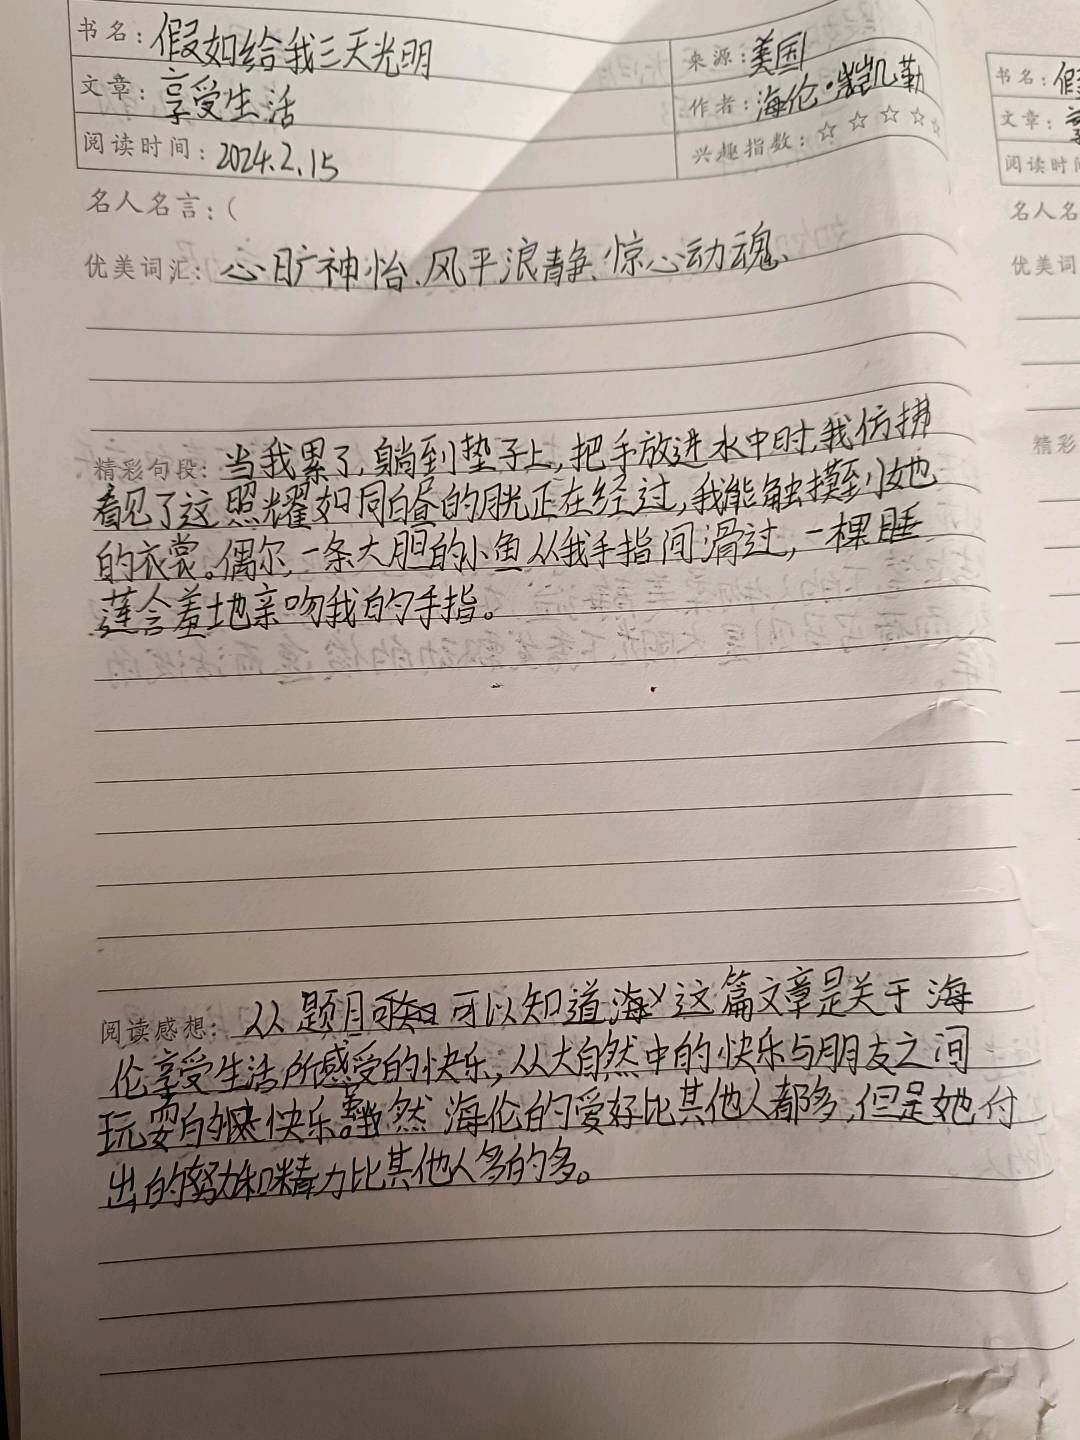 书名：假如给我三天光明
来源：美国
文章：享受生活
作者：海伦·凯勒
阅读时间：2024.2.15
兴趣指数：☆☆☆☆☆
名人名言：(
优美词汇：心旷神怡、风平浪静、惊心动魂、
精彩句段：当我累了，躺到垫子上，把手放进水中时，我仿拂
看见了这照耀如同白昼的月光正在经过，我能触摸到她
的衣裳。偶尔，一条大胆的小鱼从我手指间滑过，一棵睡
莲含羞地亲吻我的手指。
阅读感想：从题目 可以知道 这篇文章是关于海
伦享受生活所感受的快乐，从大自然中的快乐与朋友之间
玩耍的快乐。 然海伦的爱好比其他人都多，但是她付
出的努力和精力比其他人多的多。
书名：假
文章：享
阅读时间
名人名
优美词
精彩